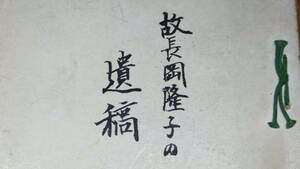 故長岡隆子の
遺稿